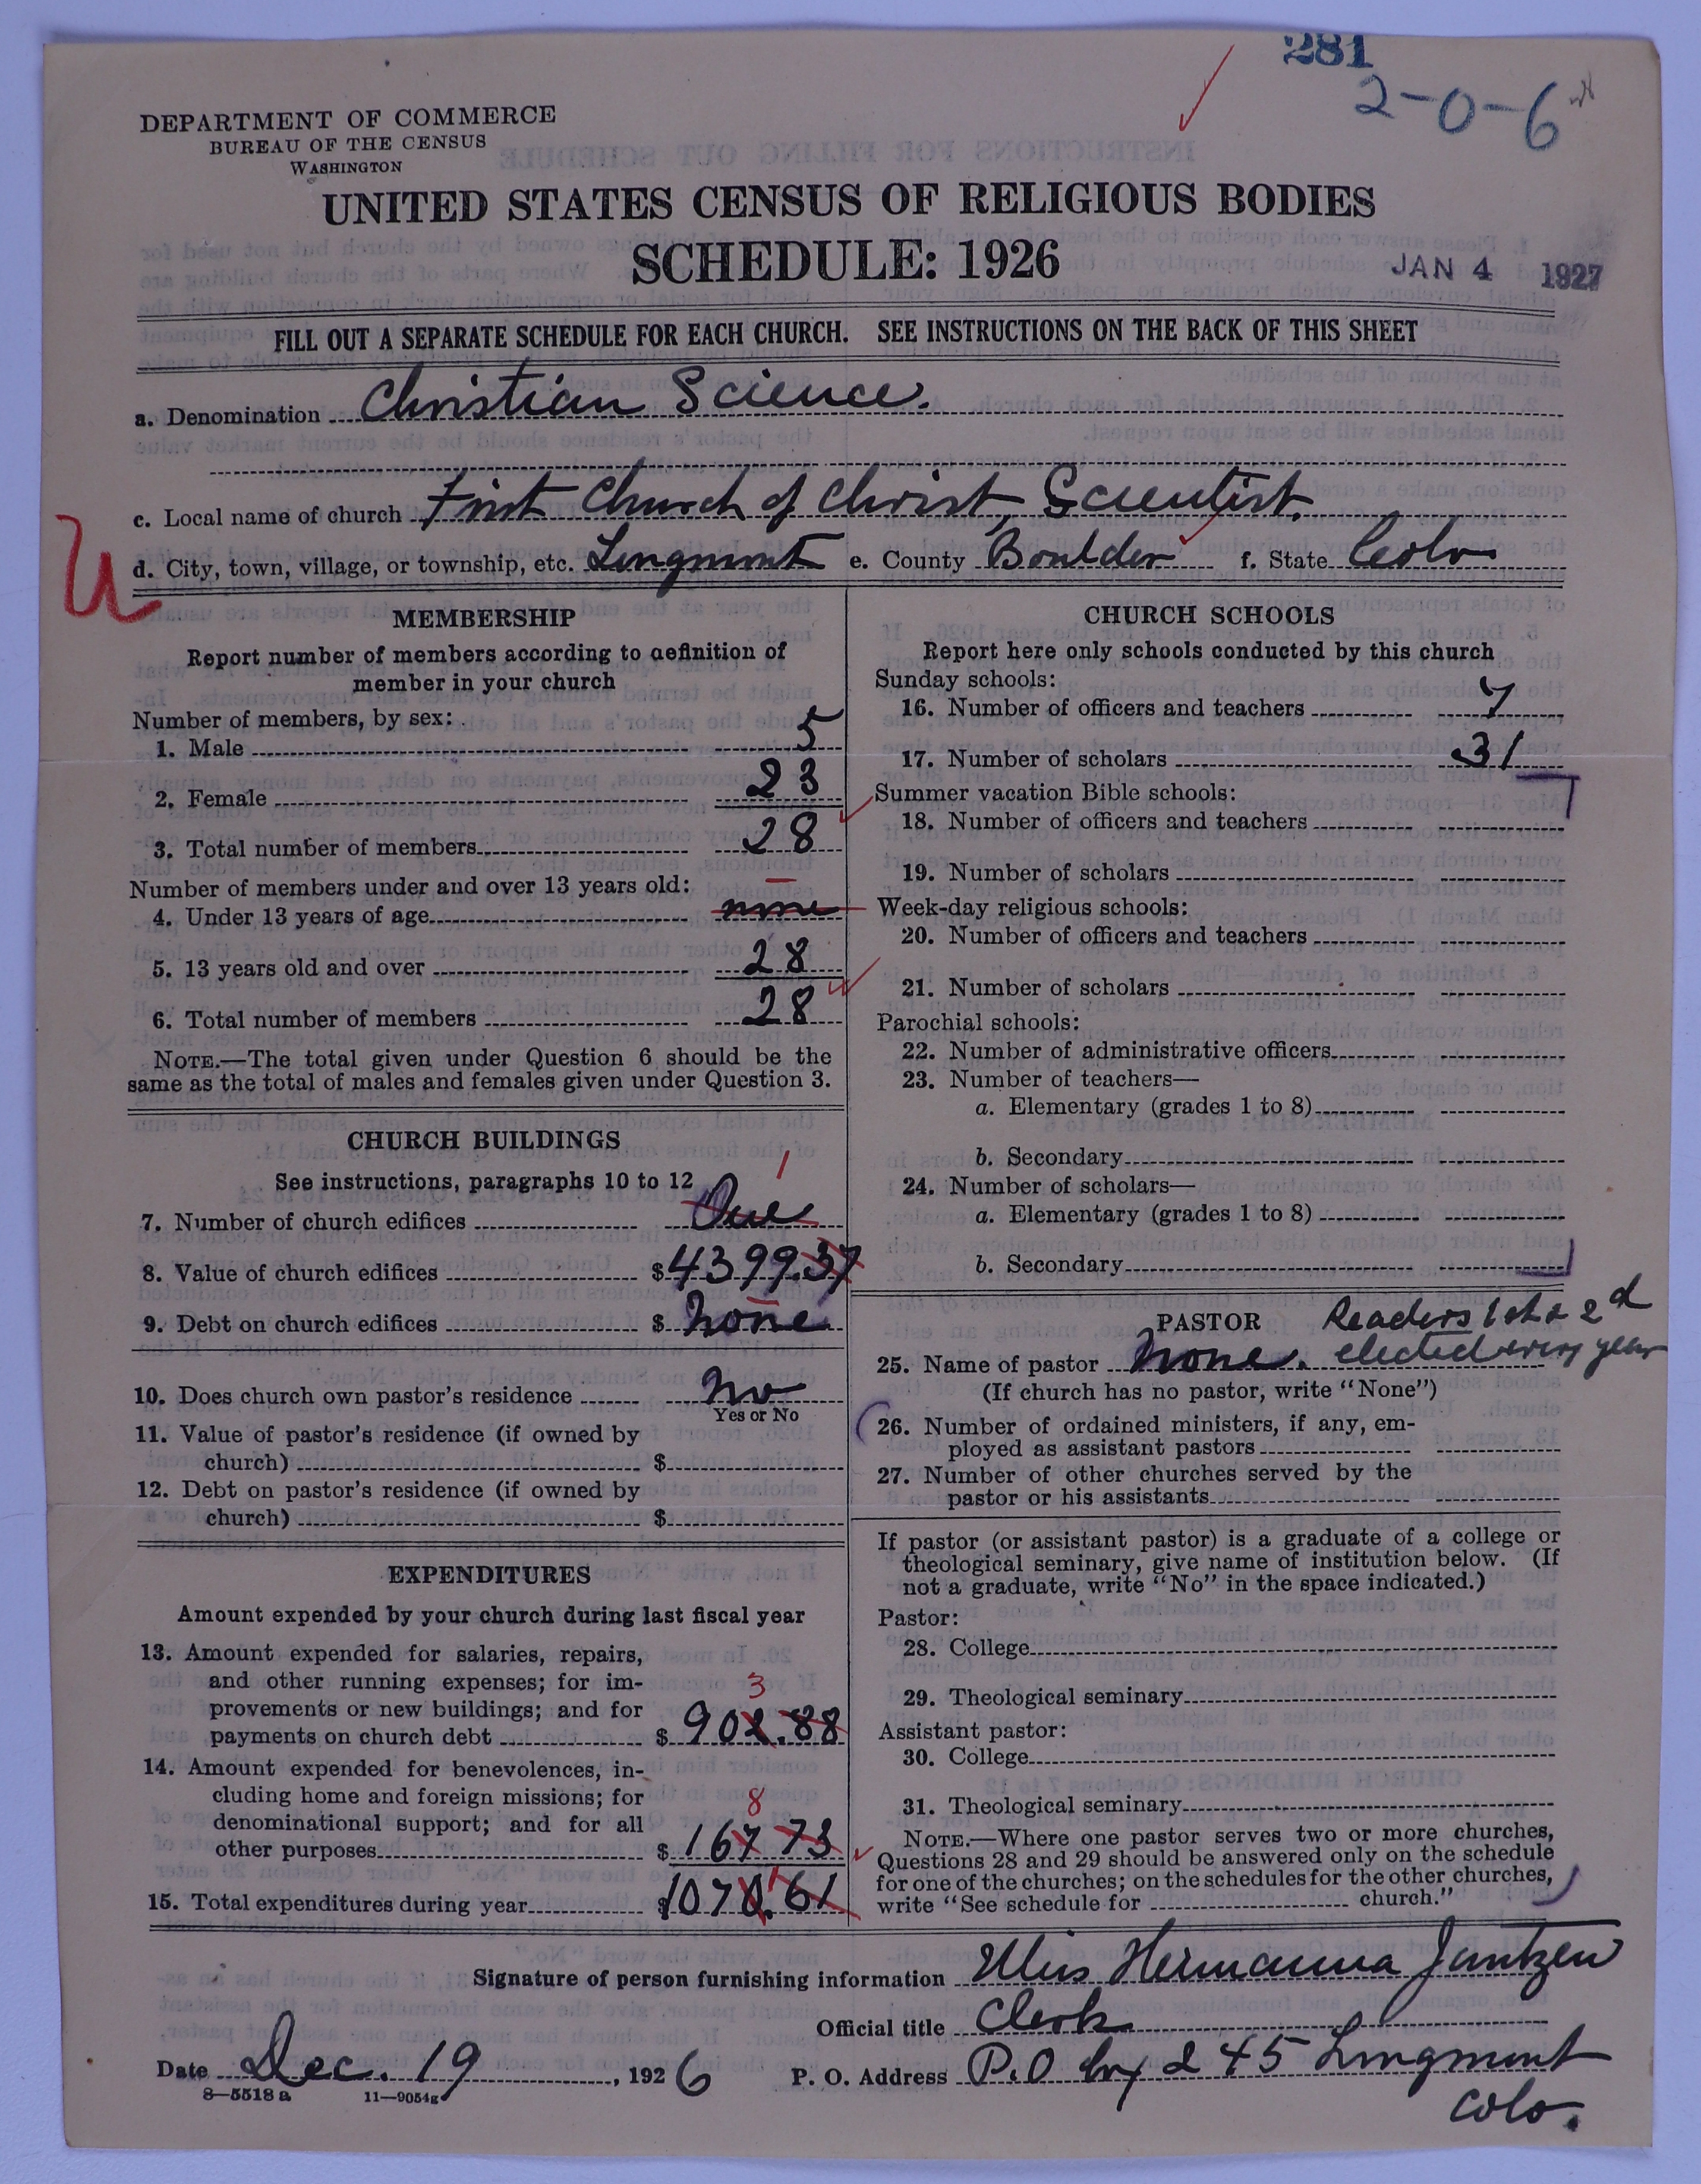 281
2-0-6
DEPARTMENT OF COMMERCE
BUREAU OF THE CENSUS
WASHINGTON
UNITED STATES CENSUS OF RELIGIOUS BODIES
SCHEDULE: 1926
JAN 4 1927
FILL OUT A SEPARATE SCHEDULE FOR EACH CHURCH. SEE INSTRUCTIONS ON THE BACK OF THIS SHEET
a. Denomination Christian Science.
c. Local name of church First Church of Christ, Scientist.
U
d. City, town, village, or township, etc. Longmont e. County Boulder f. State Colo
MEMBERSHIP
Report number of members according to definition of
member in your church
Number of members, by sex:
1. Male 5
2. Female 23
3. Total number of members 28
Number of members under and over 13 years old:
4. Under 13 years of age none
5. 13 years old and over 28
6. Total number of members 28
NOTE.—The total given under Question 6 should be the
same as the total of males and females given under Question 3.
CHURCH BUILDINGS
See instructions, paragraphs 10 to 12
1
7. Number of church edifices One
8. Value of church edifices $4399.37
9. Debt on church edifices $ none
10. Does church own pastor's residence No
Yes or No
11. Value of pastor's residence (if owned by
church) $
12. Debt on pastor's residence (if owned by
church) $
EXPENDITURES
Amount expended by your church during last fiscal year
13. Amount expended for salaries, repairs,
and other running expenses; for im-
provements or new buildings; and for
3
payments on church debt $ 902.88
14. Amount expended for benevolences, in-
cluding home and foreign missions; for
8
denominational support; and for all
other purposes $ 167 73
1
15. Total expenditures during year $1070.61
CHURCH SCHOOLS
Report here only schools conducted by this church
Sunday schools:
16. Number of officers and teachers 7
17. Number of scholars 31
Summer vacation Bible schools:
18. Number of officers and teachers
19. Number of scholars
Week-day religious schools:
20. Number of officers and teachers
21. Number of scholars
Parochial schools:
22. Number of administrative officers
23. Number of teachers—
a. Elementary (grades 1 to 8)
b. Secondary
24. Number of scholars—
a. Elementary (grades 1 to 8)
b. Secondary
PASTOR Readers 1st & 2d
25. Name of pastor None. elected every year
(If church has no pastor, write "None")
26. Number of ordained ministers, if any, em-
ployed as assistant pastors
27. Number of other churches served by the
pastor or his assistants
If pastor (or assistant pastor) is a graduate of a college or
theological seminary, give name of institution below. (If
not a graduate, write "No" in the space indicated.)
Pastor:
28. College
29. Theological seminary
Assistant pastor:
30. College
31. Theological seminary
NOTE.—Where one pastor serves two or more churches,
Questions 28 and 29 should be answered only on the schedule
for one of the churches; on the schedules for the other churches,
write "See schedule for church."
Signature of person furnishing information Miss Hermanna Jantzen
Official title Clerk
Date Dec. 19, 1926 P. O. Address P.O box 245 Longmont
Colo.
8-5518 a 11-9054g